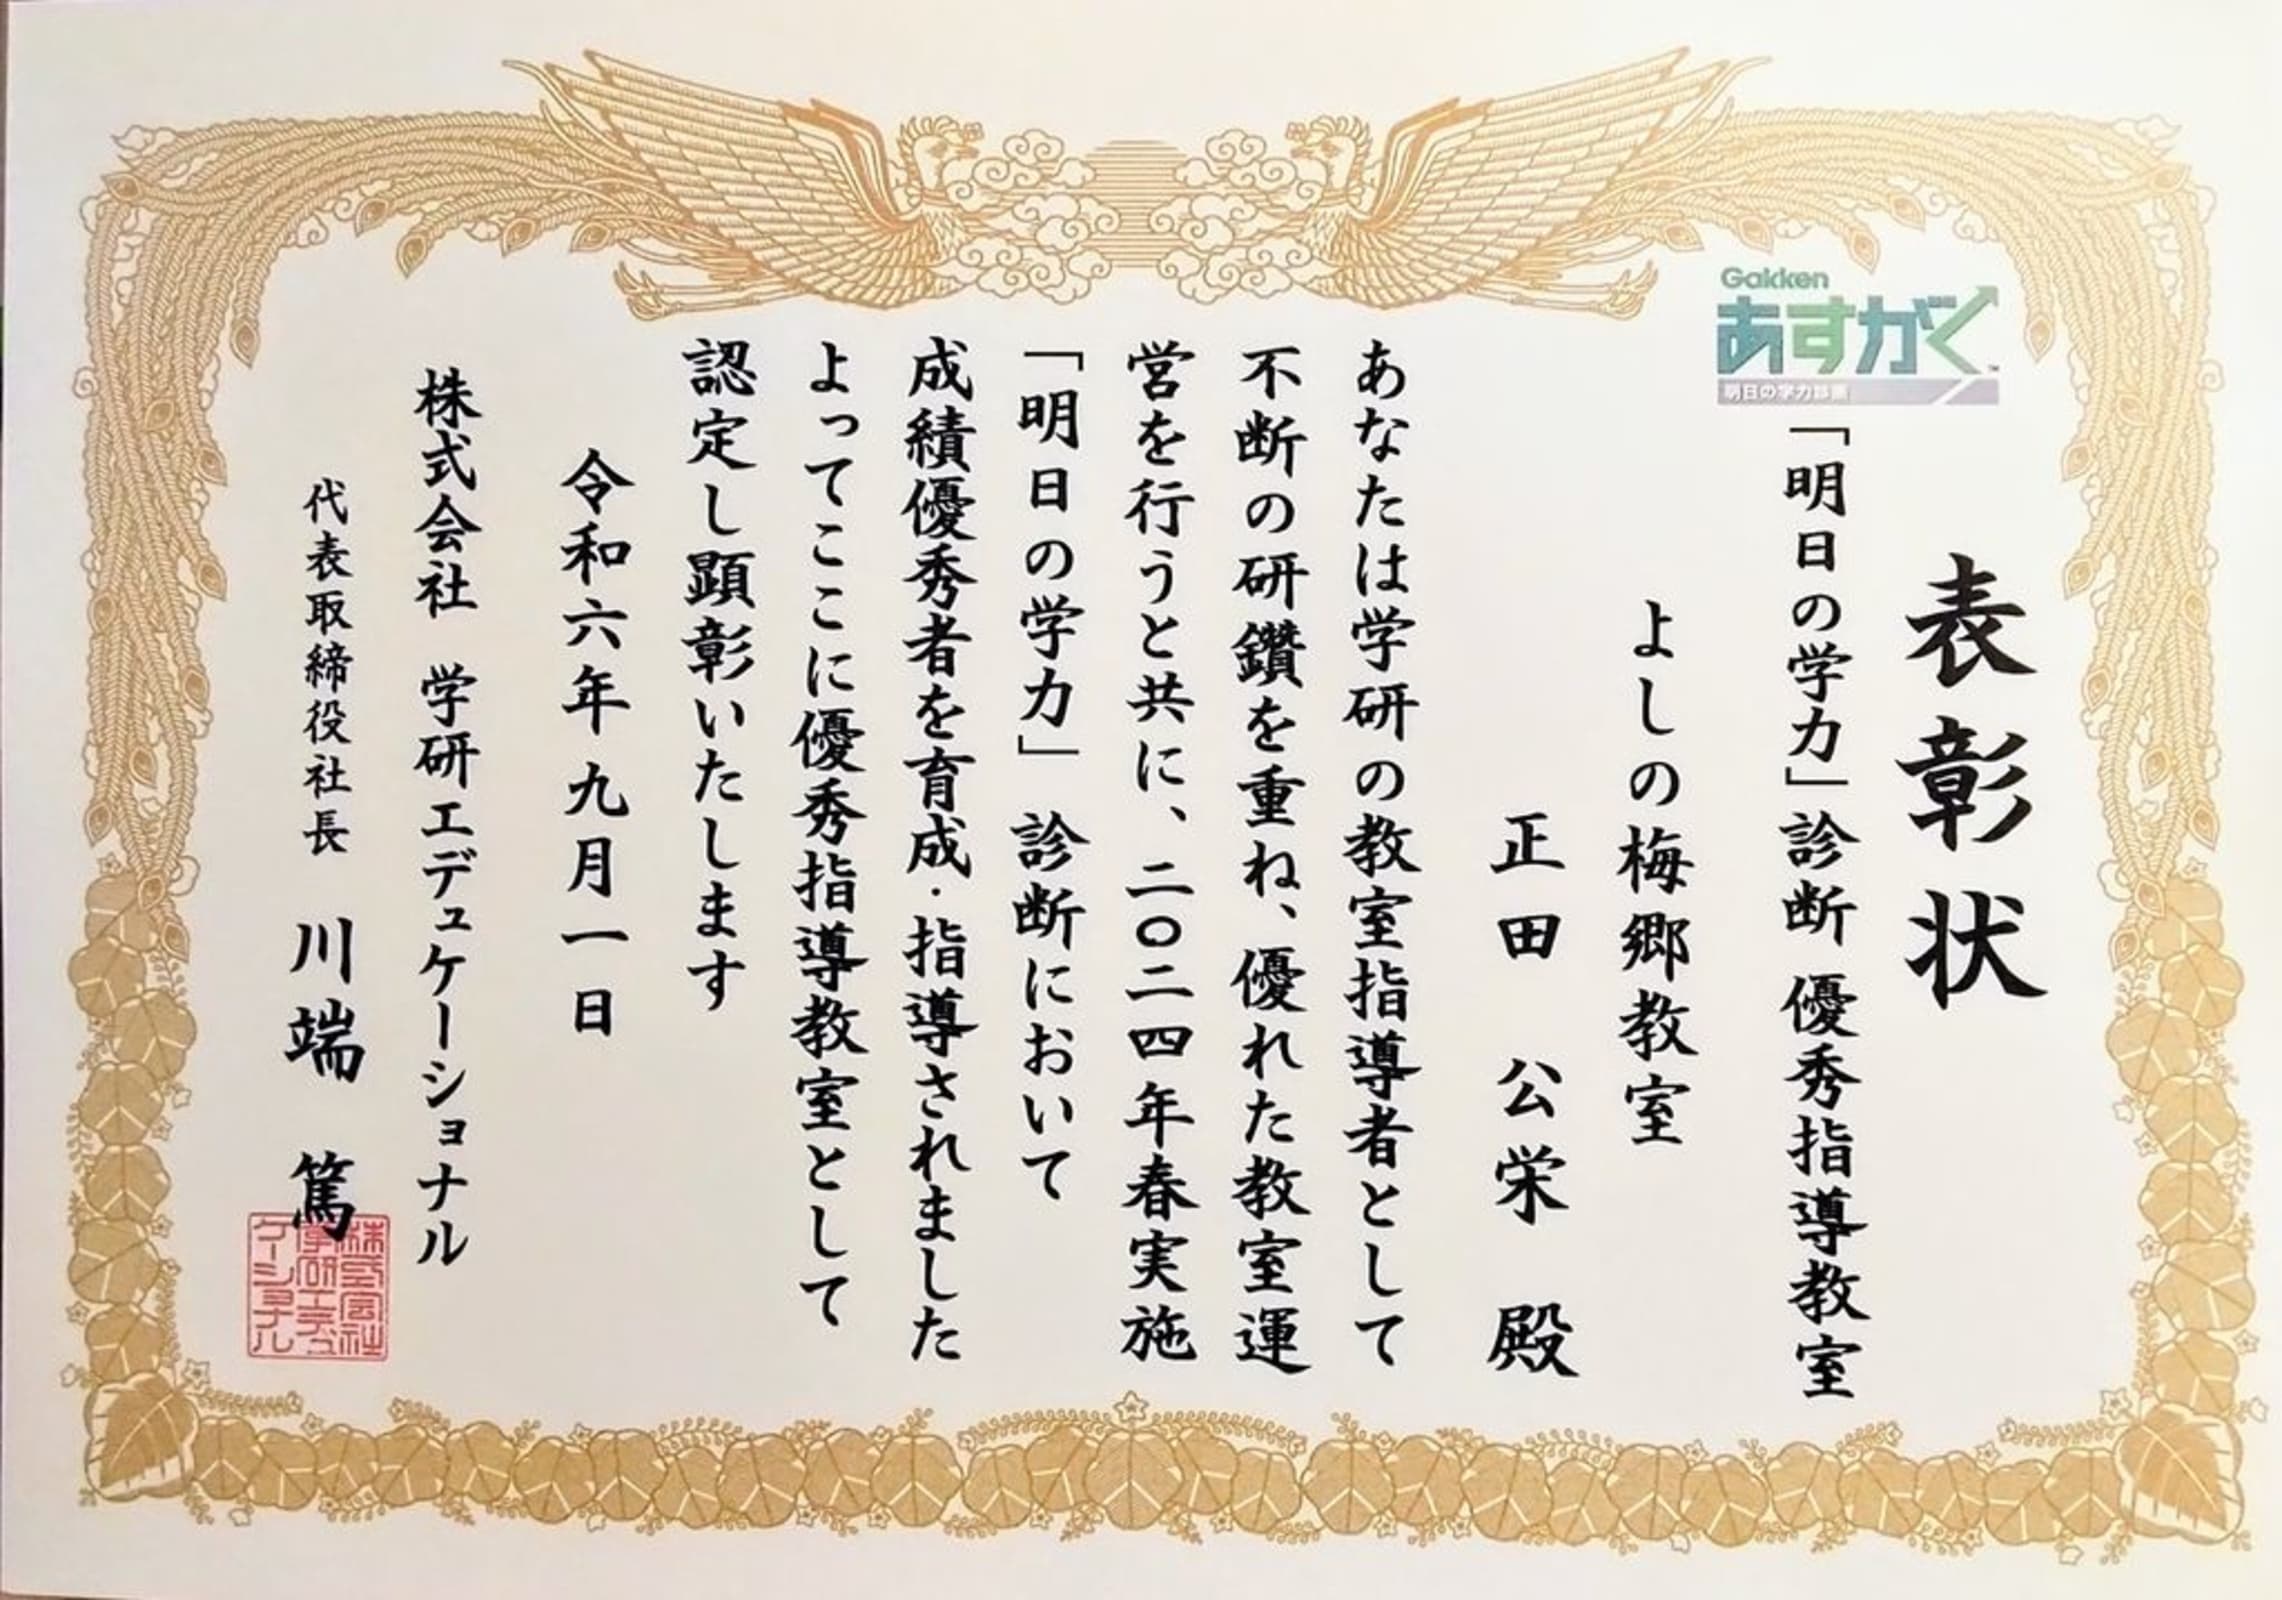 Gakken
あすがく
明日の学力診断
表彰状
「明日の学力」診断 優秀指導教室
よしの梅郷教室
正田 公栄 殿
あなたは学研の教室指導者として
不断の研鑽を重ね、優れた教室運
営を行うと共に、二〇二四年春実施
「明日の学力」診断において
成績優秀者を育成・指導されました
よってここに優秀指導教室として
認定し顕彰いたします
令和六年九月一日
株式会社 学研エデュケーショナル
代表取締役社長 川端 篤
株式会社
学研エデュ
ケーショナル